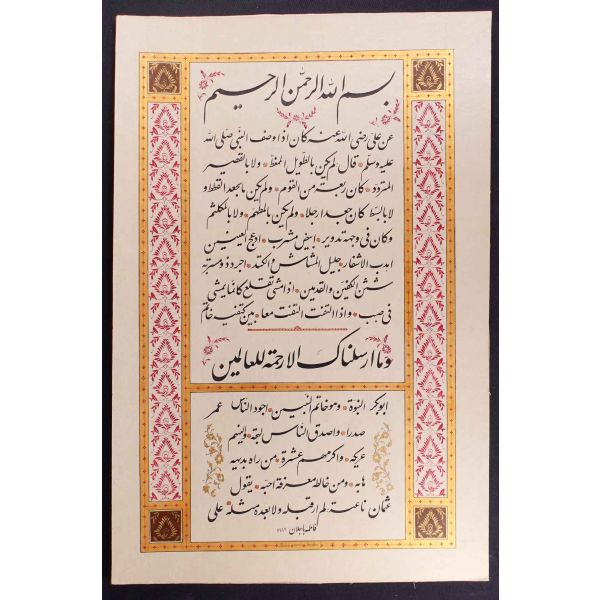 بسم الله الرحمن الرحيم
عن على رضى الله عنه كان اذا وصف النبى صلى الله
عليه وسلم قال لم يكن بالطويل الممغط ولا بالقصير
المتردد كان ربعة من القوم ولم يكن بالجعد القطط و
لا بالسبط كان جعدا رجلا ولم يكن بالمطهم ولا بالمكلثم
وكان فى وجهه تدوير ابيض مشرب ادعج العينين
اهدب الاشفار جليل المشاش والكتد اجرد ذو مسربة
شثن الكفين والقدمين اذا مشى تقلع كانما يمشى
فى صبب واذا التفت التفت معا بين كتفيه خاتم
وما ارسلناك الا رحمة للعالمين
ابوبكر النبوة وهو خاتم النبيين اجود الناس عمر
صدرا واصدق الناس لهجة والينهم
عريكة واكرمهم عشرة من راه بديهة
هابه ومن خالطه معرفة احبه يقول
عثمان ناعته لم ار قبله ولا بعده مثله على